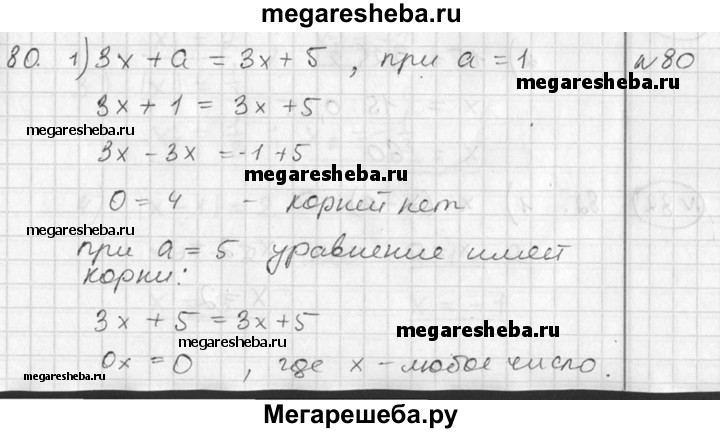 megaresheba.ru
80. 1) 3x + a = 3x + 5 , при a = 1 №80
megaresheba.ru
3x + 1 = 3x + 5
megaresheba.ru
3x - 3x = -1 + 5
megaresheba.ru
0 = 4 - корней нет
megaresheba.ru
при a = 5 уравнение имеет
корни:
3x + 5 = 3x + 5
megaresheba.ru
0x = 0 , где x - любое число.
megaresheba.ru
Мегарешеба.ру